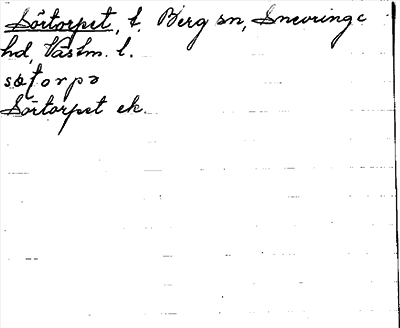 Sörtorpet, t. Berg sn, Snevringe
hd, Västm. l.
sötorpə
Sörtorpet ek.